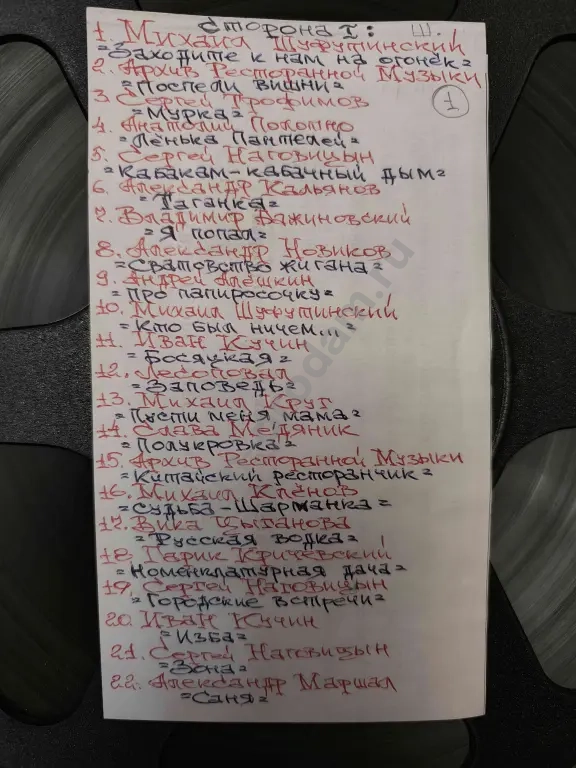 Сторона I: Ш.
1. Михаил Шуфутинский
=Заходите к нам на огонёк=
2. Архив Ресторанной Музыки
=Поспели вишни=
1
3. Сергей Трофимов
=Мурка=
4. Анатолий Полотно
=Лёнька Пантелей=
5. Сергей Наговицын
=Кабакам-кабачный дым=
6. Александр Кальянов
=Таганка=
7. Владимир Бажиновский
=Я попал=
8. Александр Новиков
=Сватовство жигана=
9. Андрей Алёшкин
=Про папиросочку=
10. Михаил Шуфутинский
=Кто был ничем...=
11. Иван Кучин
=Босяцкая=
12. Лесоповал
=Заповедь=
13. Михаил Круг
=Пусти меня мама=
14. Слава Медяник
=Полукровка=
15. Архив Ресторанной Музыки
=Китайский ресторанчик=
16. Михаил Клёнов
=Судьба-Шарманка=
17. Вика Цыганова
=Русская водка=
18. Гарик Кричевский
=Номенклатурная дача=
19. Сергей Наговицын
=Городские встречи=
20. Иван Кучин
=Изба=
21. Сергей Наговицын
=Зона=
22. Александр Маршал
=Саня=